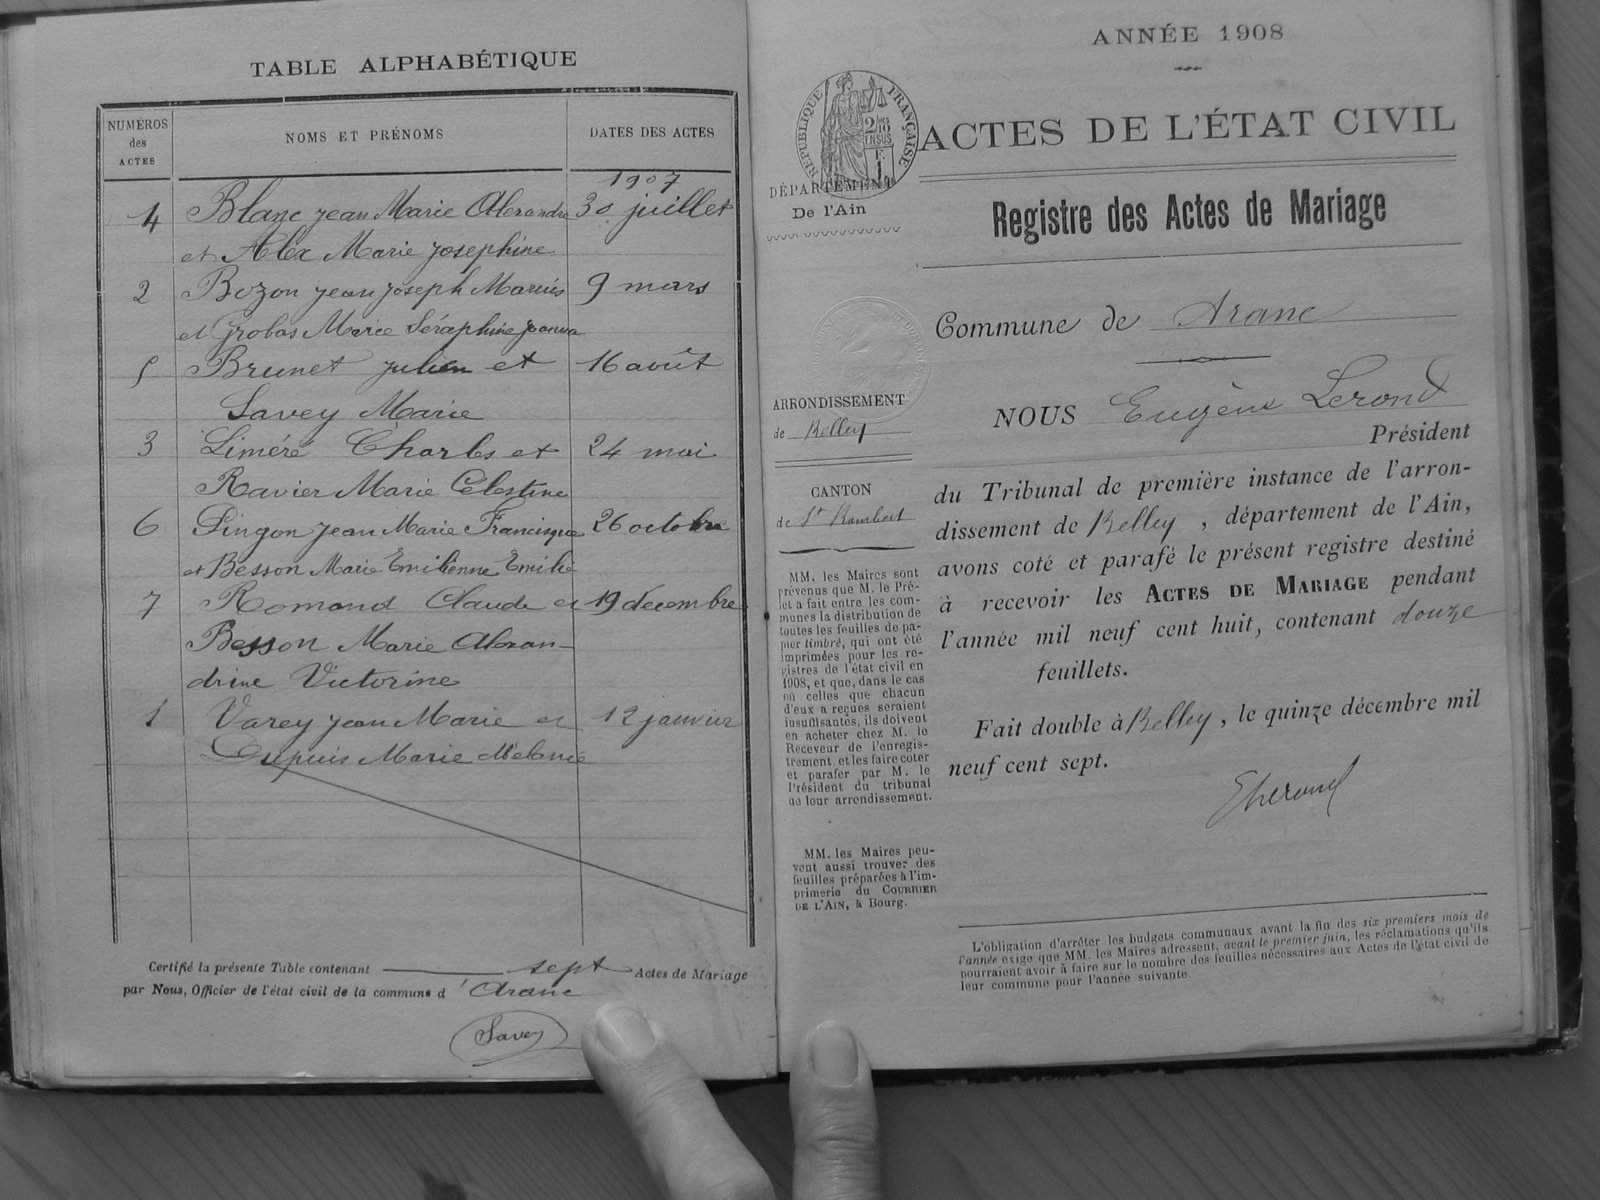 TABLE ALPHABÉTIQUE
NUMÉROS des ACTES
NOMS ET PRÉNOMS
DATES DES ACTES
1907
4 Blanc Jean Marie Alexandre 30 juillet
et Alex Marie Josephine
2 Bozon Jean Joseph Marius 9 mars
et Grobas Marie Séraphine Joanna
5 Brunet Julien et 16 août
Savey Marie
3 Liméré Charles et 24 mai
Ravier Marie Celestine
6 Pingon Jean Marie Francisque 26 octobre
et Besson Marie Emilienne Emilie
7 Romand Claude et 19 décembre
Besson Marie Alexan-
drine Victorine
1 Varey Jean Marie et 12 janvier
Dupuis Marie Mélanie
Certifié la présente Table contenant sept Actes de Mariage
par Nous, Officier de l'état civil de la commune d'Aranc
Savey
ANNÉE 1908
RÉPUBLIQUE FRANÇAISE
2/10 EN SUS
ACTES DE L'ÉTAT CIVIL
DÉPARTEMENT
De l'Ain
Registre des Actes de Mariage
Commune de Aranc
ARRONDISSEMENT
de Belley
CANTON
de St Rambert
NOUS Eugène Lerond
Président
du Tribunal de première instance de l'arron-
dissement de Belley, département de l'Ain,
avons coté et parafé le présent registre destiné
à recevoir les ACTES DE MARIAGE pendant
l'année mil neuf cent huit, contenant douze
feuillets.
Fait double à Belley, le quinze décembre mil
neuf cent sept.
MM. les Maires sont
prévenus que M. le Pré-
fet a fait entre les com-
munes la distribution de
toutes les feuilles de pa-
pier timbré, qui ont été
imprimées pour les re-
gistres de l'état civil en
1908, et que, dans le cas
où celles que chacun
d'eux a reçues seraient
insuffisantes, ils doivent
en acheter chez M. le
Receveur de l'enregis-
trement, et les faire coter
et parafer par M. le
Président du tribunal
de leur arrondissement.
MM. les Maires peu-
vent aussi trouver des
feuilles préparées à l'im-
primerie du COURRIER
DE L'AIN, à Bourg.
L'obligation d'arrêter les budgets communaux avant la fin des six premiers mois de
l'année exige que MM. les Maires adressent, avant le premier juin, les réclamations qu'ils
pourraient avoir à faire sur le nombre des feuilles nécessaires aux Actes de l'état civil de
leur commune pour l'année suivante.